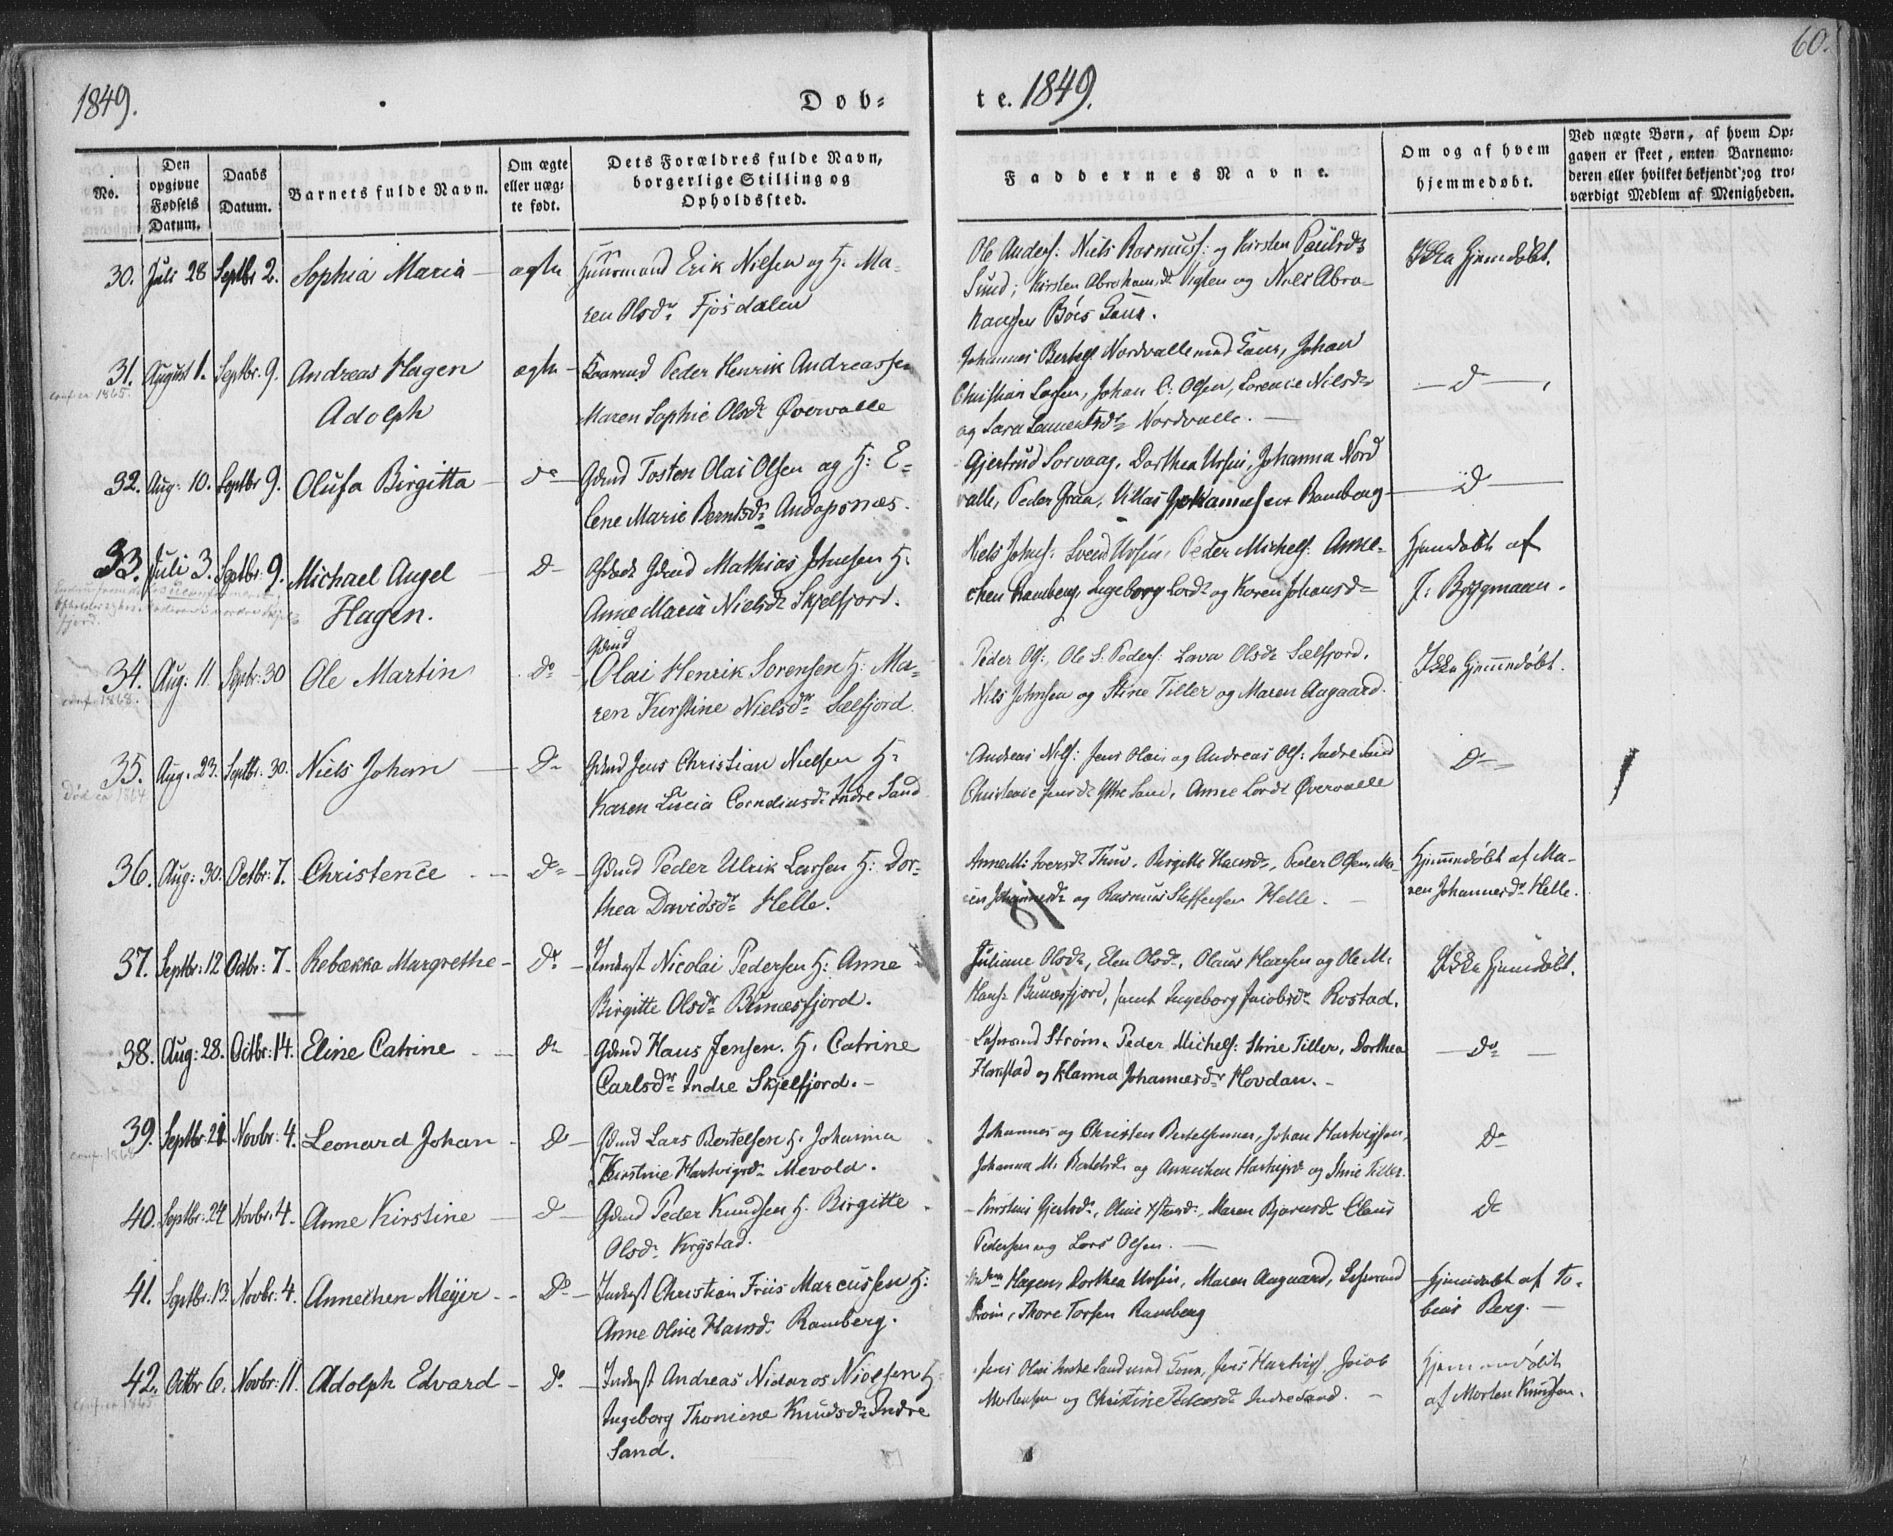 1849.
Døb=
te. 1849.
60.
No.
Den opgivne Fødsels Datum.
Daabs Datum.
Barnets fulde Navn.
Om ægte eller uæg= te født.
Dets Forældres fulde Navn, borgerlige Stilling og Opholdssted.
Faddernes Navne.
Om og af hvem hjemmedøbt.
Ved uægte Børn, af hvem Op=
gaven er skeet, enten Barnemo=
deren eller hvilket bekjendt, og tro=
værdigt Medlem af Menigheden.
30. Juli 28 Septbr 2. Sophia Maria ægte Huusmand Erik Nielsen og H. Ma=
ren Olsdr Fjøsdalen
Ole Anders: Niels Rasmuss: og Kirsten Paulsdr
Sund; Kirsten Abrahamsdr Vigten og Niels Abra=
hamsen Bøes Enke.
Ikke hjemdøbt.
31. August 1. Septbr. 9. Andreas Hagen
Adolph
ægte Peder Henrik Andreassen
Maren Sophie Olsdr Øvervalle
conf. 1865.
Johannes Bertels Nordvalle med Kone, Johan
Christian Larsen, Johan C: Olsen, Lorence Nilsdr
og Sara Nordvalle.
D
32. Aug: 10. Septbr 9. Olufa Birgitta do Gdmd Tosten Olai Olsen og H: E=
lene Marie Berntsdr Andopsnæs.
Gjertrud Sorvaag, Dorthea Ursin, Johanna Nord
valle, Peder Graa, Johannesen Ramberg
D
33. Juli 3. Septbr. 9. Michael Angel
Hagen.
D Gdmd Mathias Johnsen H.
Anne Maria Nielsdr Skjelfjord.
Niels Johns: Svend Ursin, Peder Michels: Anne=
chen Ramberg, Ingeborg Larsdr og Karen Johansdr
Hjemdøbt af
J: Byggmann.
34. Aug: 11. Septbr: 30 Ole Martin do Gdmd
Olai Henrik Sørensen H: Ma=
ren Kirstine Nielsdr Sælfjord
conf. 1868.
Peder Ols: Ole S. Peders: Lava Olsdr Sælfjord.
Nils Johnsen og Stine Tiller og Maren Aagaard.
Ikke hjemmedøbt.
35. Aug. 23. Septbr: 30. Niels Johan D Gdmd Jens Christian Nielsen H.
Karen Lucia Corneliusdr Indre Sand
Død ca 1864
Andreas Nils: Jens Olai og Andreas Ols: Indre Sand
Jensdr Ytre Sand, Anne Larsdr Øvervalle
D
36. Aug: 30. Octbr: 7. Christence D Gdmd Peder Ulrik Larsen H: Dor=
thea Davidsdr Helle.
Iversdr Birgitte Hansdr, Peder Olsen, Ma=
ren Johannesdr og Rasmus Steffensen Helle.
Hjemmedøbt af Ma=
ren Johannesdr Helle.
37. Septbr: 12 Octbr: 7. Rebækka Margrethe D Inderst Nicolai Pedersen H. Anne
Birgitte Olsdr Bunæsfjord.
Juliane Olsdr, Elen Olsdr, Olaus Hansen og Ole M.
Hans: Bunæsfjord, samt Ingeborg Jacobsdr Rostad.
Ikke hjemdøbt.
38. Aug: 28. Octbr: 14. Eline Catrine do Gdmd Hans Jensen. H. Catrine
Carlsdr Indre Skjelfjord.
Strøm. Peder Michels: Stine Tiller, Dorthea
og Hanna Johannesdr Hovdan.
Do
39. Septbr: 21 Novbr: 4. Leonard Johan D Gdmd Lars Bertelsen H. Johanna
Kirstine Hartvigsdr Mevold.
conf. 1865
Johannes og Christen Bertelsenner, Johan Hartvigsen,
Johanna M. Bertelsdr og Annechen Hartvigsdr og Stine Tiller.
Do
40. Septbr: 24 Novbr: 4. Anne Kirstine D Gdmd Peder Knudsen H. Birgitte
Olsdr Krystad.
Kirstine Gjertsdr, Maren Bjørnsdr Claus
Pedersen og Lars Olsen.
Do
41. Septbr. 13. Novbr: 4. Annechen Meyer Do Inderst Christian Friis Marcussen H:
Anne Oline Hansdr Ramberg.
Hagen, Dorthea Ursin, Maren Aagaard,
Strøm, Thore Torsen Ramberg
Hjemdøbt af To=
bias Berg.
42. Octbr 6. Novbr: 11. Adolph Edvard Do Inderst Andreas Nidaros Nielsen H:
Ingeborg Thomine Knudsdr Indre
Sand.
conf. ca 1865
Jens Olai Indre Sand med Kone, Jens Hartvigs Jacob
Mortensen og Christine Pedersdr Indre Sand.
Hjemmedøbt
af Morten Knudsen.